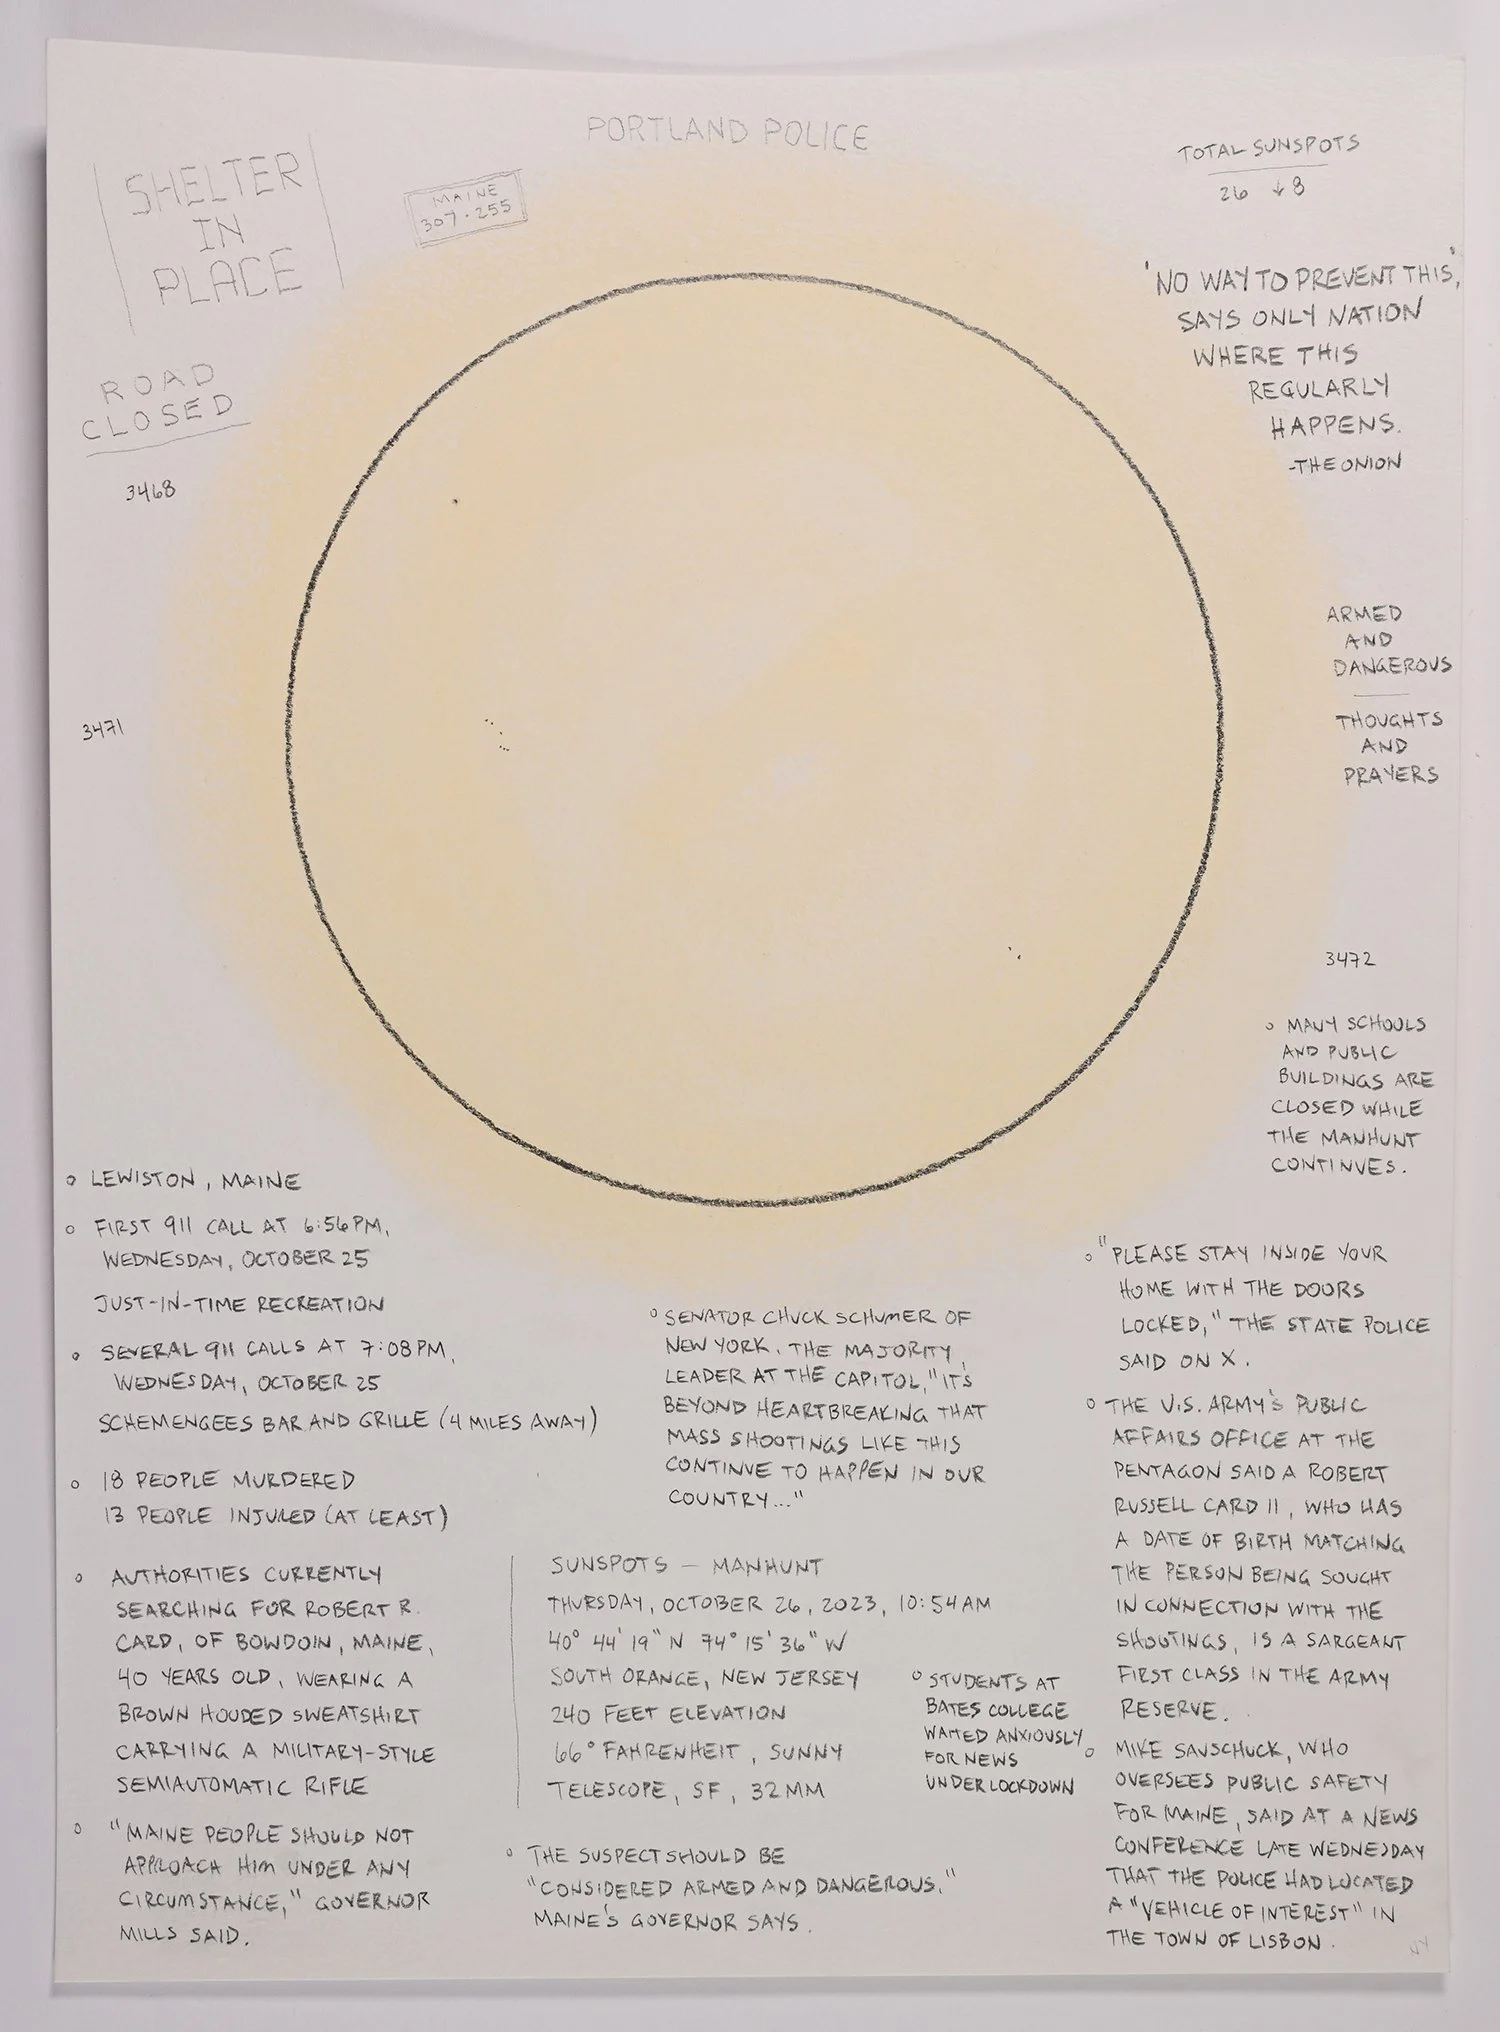 PORTLAND POLICE
SHELTER
IN
PLACE
MAINE
307·255
TOTAL SUNSPOTS
26 ↓8
'NO WAY TO PREVENT THIS',
SAYS ONLY NATION
WHERE THIS
REGULARLY
HAPPENS.
-THE ONION
ROAD
CLOSED
3468
3471
ARMED
AND
DANGEROUS
THOUGHTS
AND
PRAYERS
3472
° MANY SCHOOLS
AND PUBLIC
BUILDINGS ARE
CLOSED WHILE
THE MANHUNT
CONTINUES.
° LEWISTON, MAINE
° FIRST 911 CALL AT 6:56 PM,
WEDNESDAY, OCTOBER 25
JUST-IN-TIME RECREATION
° SEVERAL 911 CALLS AT 7:08 PM,
WEDNESDAY, OCTOBER 25
SCHEMENGEES BAR AND GRILLE (4 MILES AWAY)
° 18 PEOPLE MURDERED
13 PEOPLE INJURED (AT LEAST)
° AUTHORITIES CURRENTLY
SEARCHING FOR ROBERT R.
CARD, OF BOWDOIN, MAINE,
40 YEARS OLD, WEARING A
BROWN HOODED SWEATSHIRT
CARRYING A MILITARY-STYLE
SEMIAUTOMATIC RIFLE
° "MAINE PEOPLE SHOULD NOT
APPROACH HIM UNDER ANY
CIRCUMSTANCE," GOVERNOR
MILLS SAID.
° SENATOR CHUCK SCHUMER OF
NEW YORK. THE MAJORITY
LEADER AT THE CAPITOL, "IT'S
BEYOND HEARTBREAKING THAT
MASS SHOOTINGS LIKE THIS
CONTINUE TO HAPPEN IN OUR
COUNTRY..."
SUNSPOTS — MANHUNT
THURSDAY, OCTOBER 26, 2023, 10:54 AM
40° 44' 19" N 74° 15' 36" W
SOUTH ORANGE, NEW JERSEY
240 FEET ELEVATION
66° FAHRENHEIT, SUNNY
TELESCOPE, SF, 32MM
° STUDENTS AT
BATES COLLEGE
WAITED ANXIOUSLY
FOR NEWS
UNDER LOCKDOWN
° THE SUSPECT SHOULD BE
"CONSIDERED ARMED AND DANGEROUS."
MAINE'S GOVERNOR SAYS.
° "PLEASE STAY INSIDE YOUR
HOME WITH THE DOORS
LOCKED," THE STATE POLICE
SAID ON X.
° THE U.S. ARMY'S PUBLIC
AFFAIRS OFFICE AT THE
PENTAGON SAID A ROBERT
RUSSELL CARD II, WHO HAS
A DATE OF BIRTH MATCHING
THE PERSON BEING SOUGHT
IN CONNECTION WITH THE
SHOOTINGS, IS A SARGEANT
FIRST CLASS IN THE ARMY
RESERVE.
° MIKE SAUSCHUCK, WHO
OVERSEES PUBLIC SAFETY
FOR MAINE, SAID AT A NEWS
CONFERENCE LATE WEDNESDAY
THAT THE POLICE HAD LOCATED
A "VEHICLE OF INTEREST" IN
THE TOWN OF LISBON.